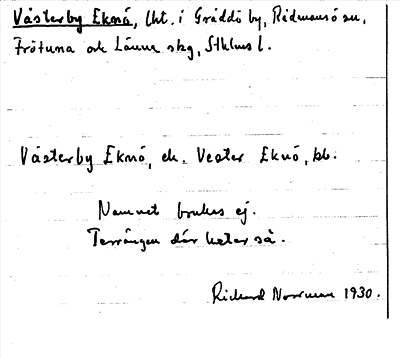 Västerby Eknö, lht. i Gräddö by, Rådmansö sn,
Frötuna och Länna skg, Sthlms l.
Västerby Eknö, ek. Vester Eknö, bb.
Namnet brukas ej.
Terrängen där heter så.
Richard Norrman 1930.